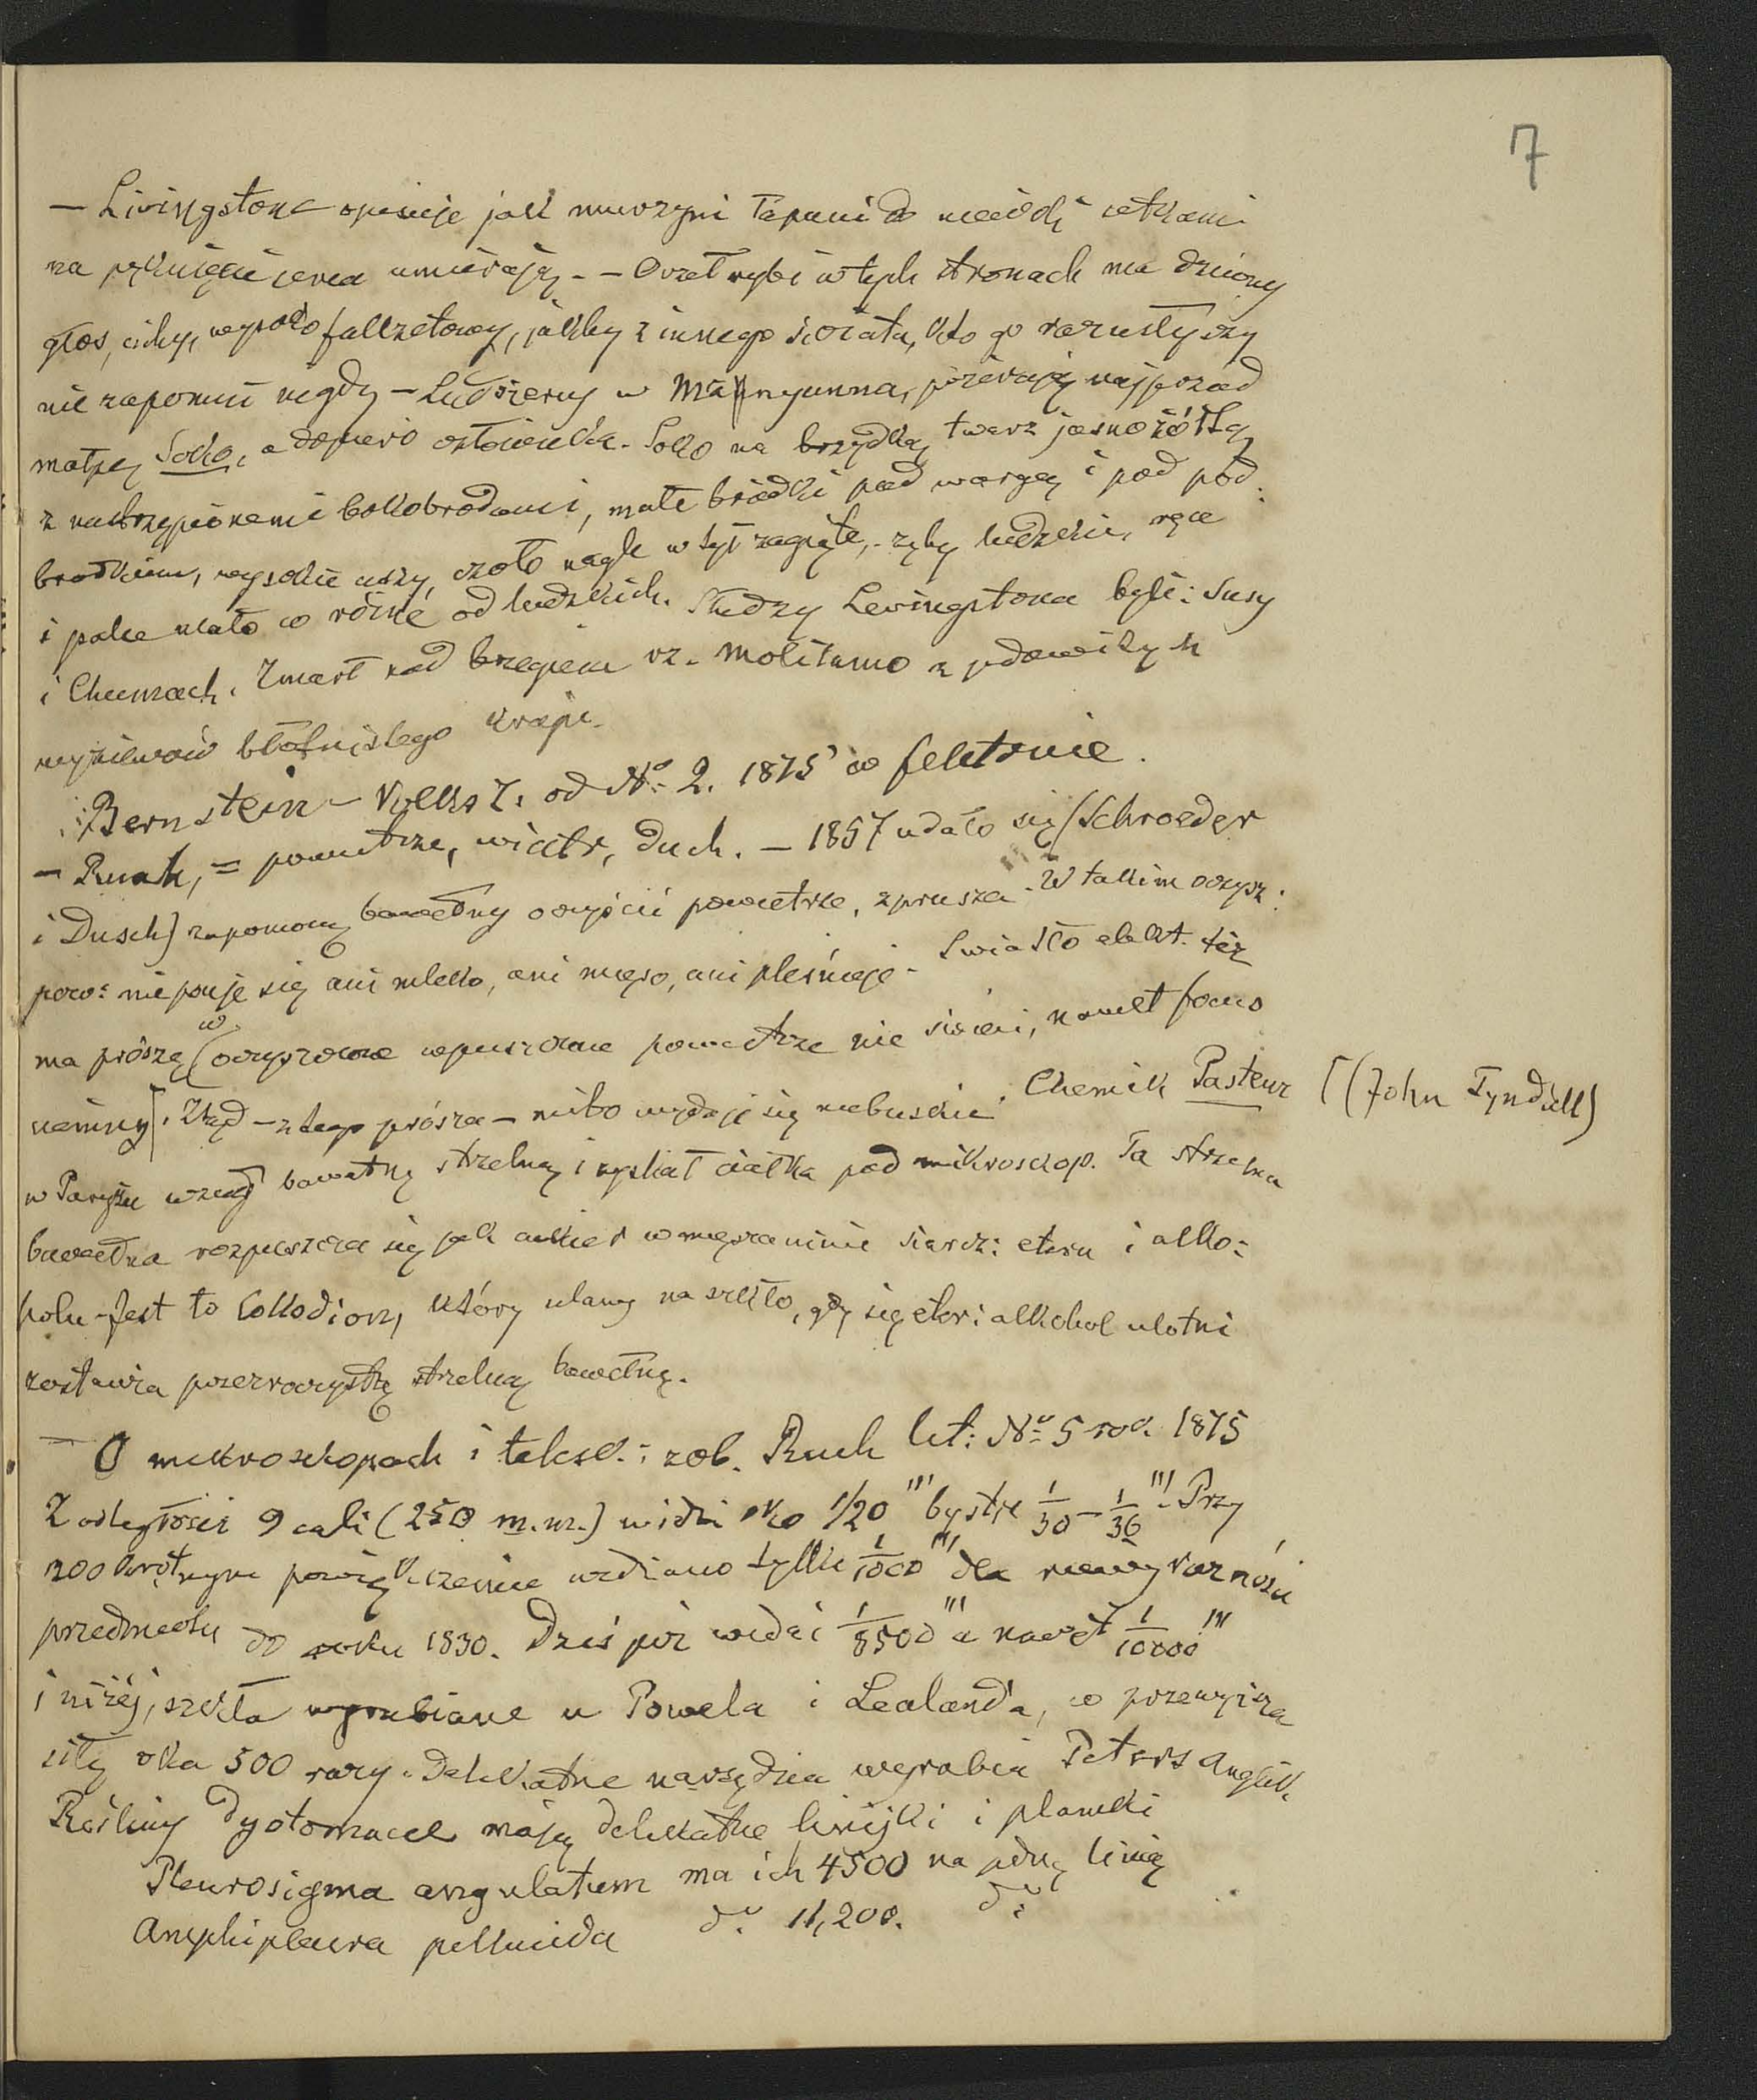 7
— Livingstone opisuje jak murzyni łapani do niewoli setkami
na pęknięcie serca umierają. — Orzeł rybi w tych stronach ma dziwny
głos, cichy, wysoko falzetowy, jakby z innego świata, kto go raz usłyszy
nie zapomni nigdy — Ludożercy w Manyunna, pożerają najprzód
małpę Soko, a dopiero człowieka. Soko ma brzydką twarz jasnożółtą
z nastrzępionemi bokobrodami, małe bródki pod wargą i pod pod:
brodkiem, wysokie uszy, czoło nagle w tył zagięte, zęby ludzkie, ręce
i palce mało co różne od ludzkich. Słudzy Levingstona byli: Susy
i Chumach. Zmarł nad brzegiem rz. Molilamo z jadowitych
wyziewów błotnistego kraju.
Bernstein — Volks Z. od No 2. 1875 w feletonie.
— Ruah, = powietrze, wiatr, duch. — 1857 udało się (Schroeder
i Dusch) zapomocą bawełny oczyścić powietrze, z prusza. W takim oczysz:
pow: nie psuje się ani mleko, ani mięso, ani pleśnieje. Światło elekt. też
ma prószę (w oczyszczone wpuszczone powietrze nie świeci, nawet
. Ztąd — z tego prósza — niebo wydaje się niebieskie. Chemik Pasteur [(John Tyndall)
w Paryżu wziął bawełnę strzelną i zyskał ciałka pod mikroskop. Ta strzelna
bawełna rozpuszcza się jak cukier w mięszaninie siarcz: eteru i alko:
holu — Jest to Collodion, który ulany na szkło, gdy się eter i alkohol ulotni
zostawia przezroczystą strzelną bawełnę.
— O mikroskopach i telesk.: zob. Ruch lit: No 5 rok 1875
Z odległości 9 cali (250 m.m.) widzi oko 1/20 ''' bystre 1/30 — 1/36 '''. Przy
200 krotnym powiększeniu widziano tylko 1/1000 ''' dla niewyraźności
przedmiotu do roku 1830. Dziś już widać 1/8500 ''' a nawet 1/10000 '''
i niżej, szkła wyrabiane u Powela i Lealand'a, co przewyższa
siłę oka 500 razy. Delikatne narzędzia wyrabia Peters Anglik.
Rośliny Dyotomacee mają delikatne linijki i plamki
Pleurosigma angulatum ma ich 4500 na jedną linię
Amphipleura pellucida do 11,200. do